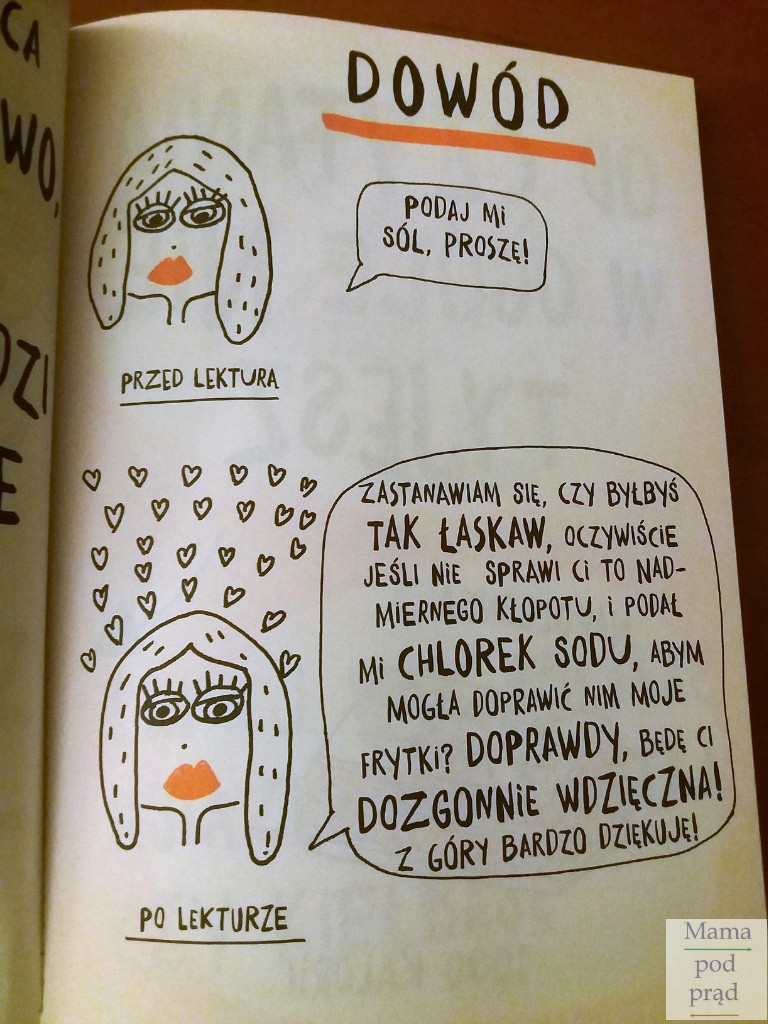 CA
WO,
DZI
E
DOWÓD
PODAJ MI
SÓL, PROSZĘ!
PRZED LEKTURA
ZASTANAWIAM SIĘ, CZY BYŁBYŚ
TAK ŁASKAW, OCZYWIŚCIE
JEŚLI NIE SPRAWI CI TO NAD-
MIERNEGO KŁOPOTU, I PODAŁ
MI CHLOREK SODU, ABYM
MOGŁA DOPRAWIĆ NIM MOJE
FRYTKI? DOPRAWDY, BĘDĘ CI
DOZGONNIE WDZIĘCZNA!
Z GÓRY BARDZO DZIĘKUJĘ!
PO LEKTURZE
Mama
pod
prąd